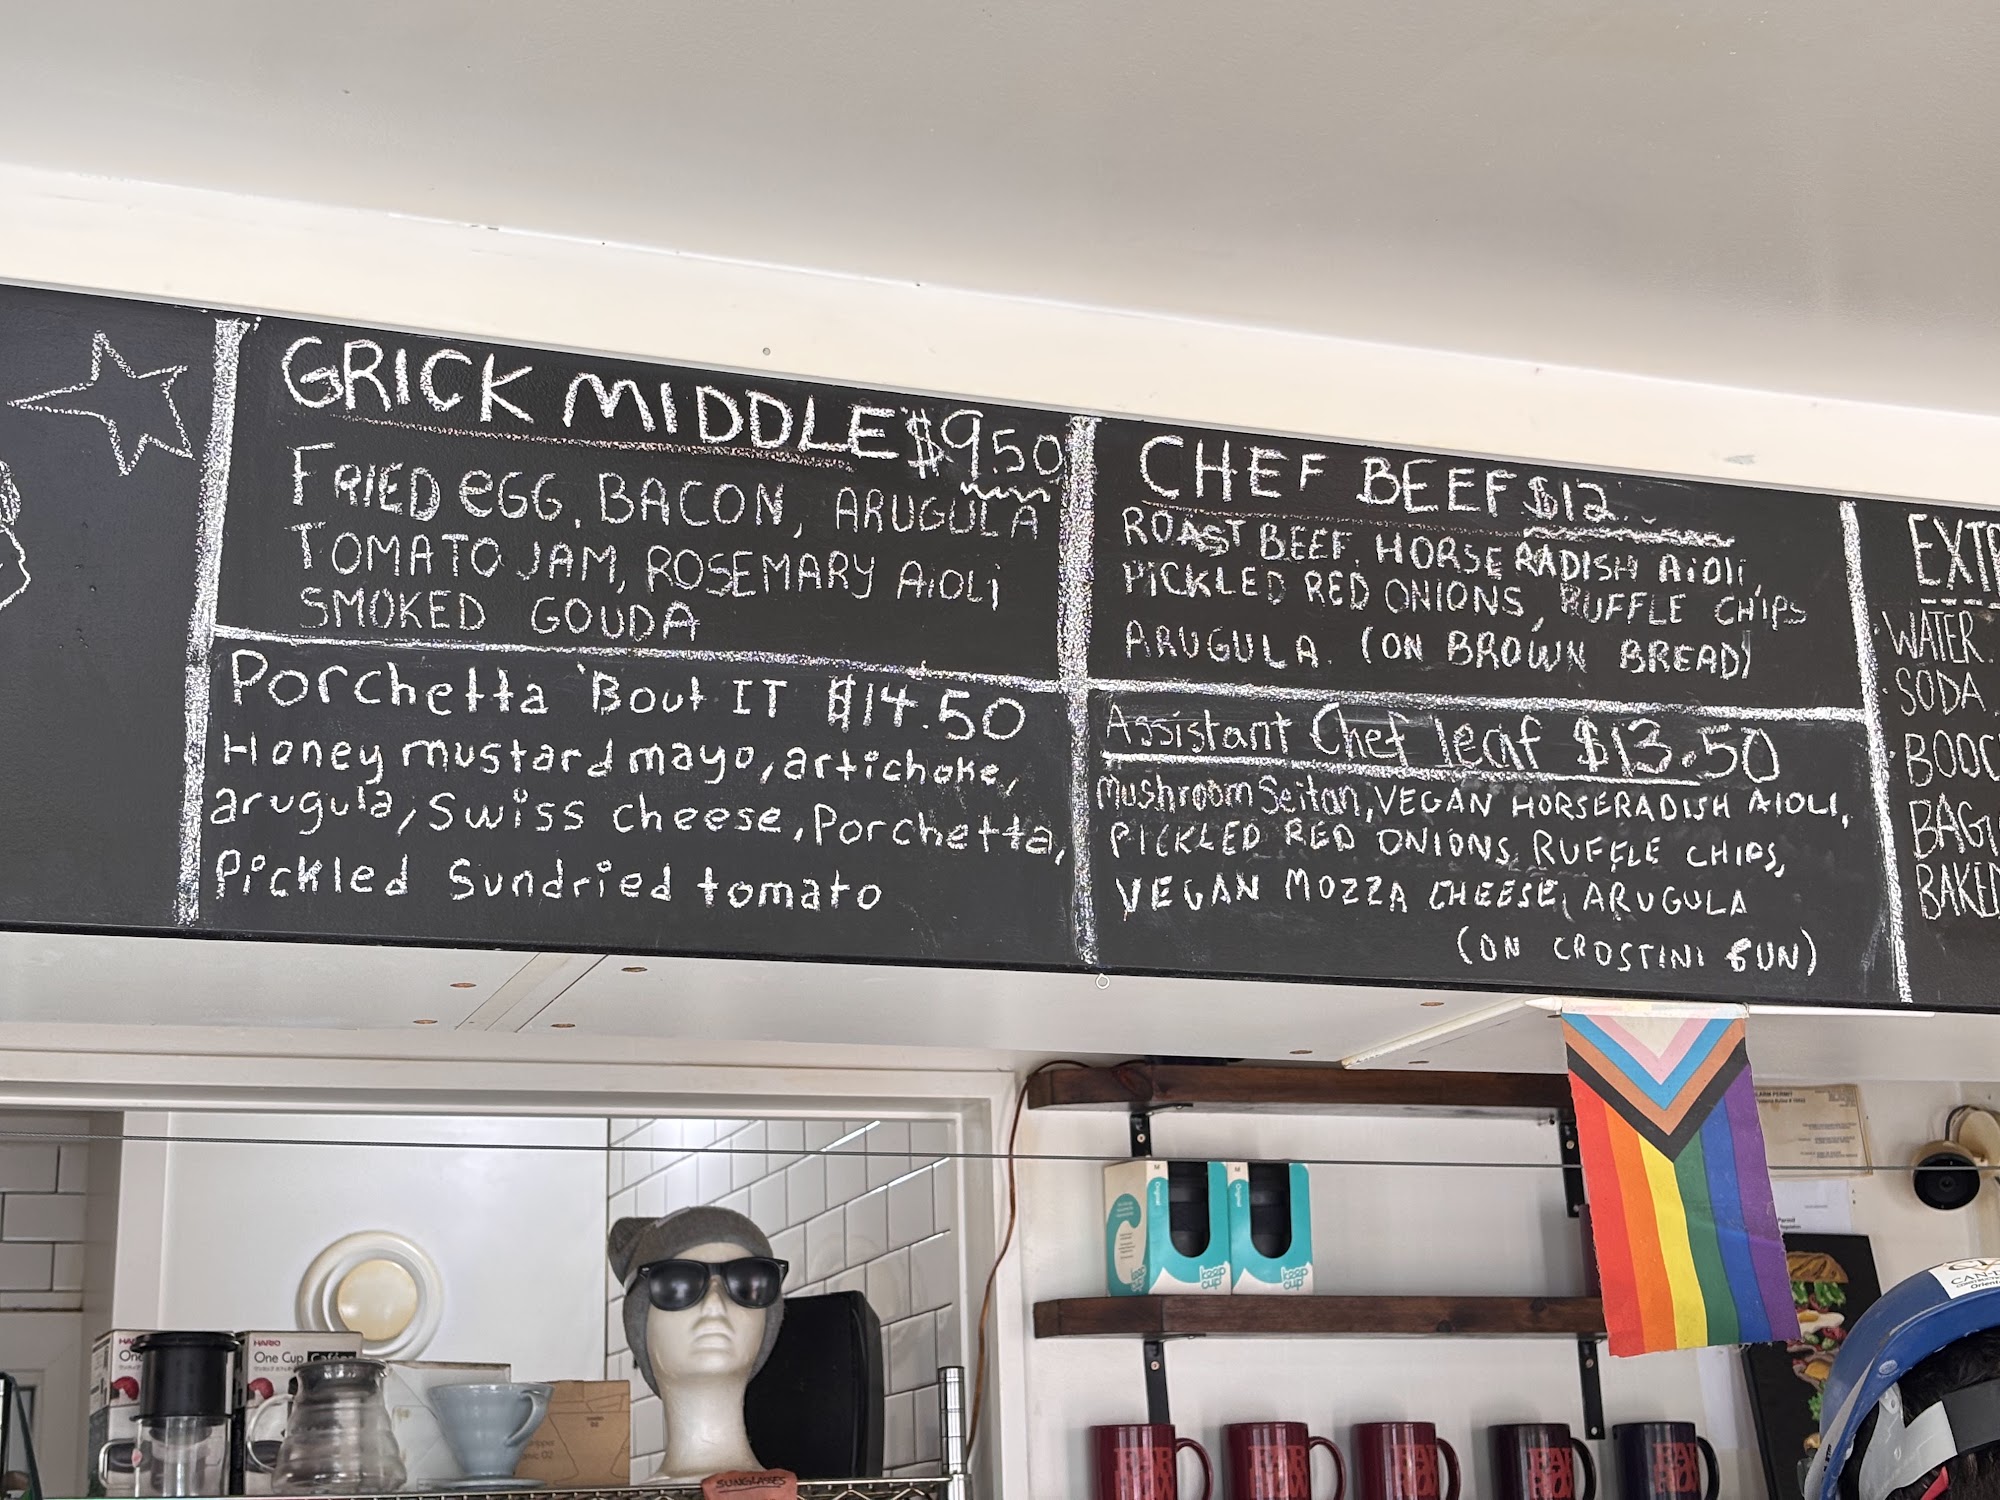 GRICK MIDDLE $9.50
FRIED EGG, BACON, ARUGULA
TOMATO JAM, ROSEMARY AiOLi
SMOKED GOUDA
Porchetta 'Bout IT $14.50
Honey mustard mayo, artichoke,
arugula, Swiss cheese, Porchetta,
Pickled Sundried tomato
CHEF BEEF $12
ROAST BEEF, HORSERADISH AiOli,
PICKLED RED ONIONS, RUFFLE CHIPS
ARUGULA. (ON BROWN BREAD)
Assistant Chef leaf $13.50
Mushroom Seitan, VEGAN HORSERADISH AIOLI,
PICKLED RED ONIONS, RUFFLE CHIPS,
VEGAN MOZZA CHEESE, ARUGULA
(ON CROSTINI BUN)
WATER.
SODA
BAKED
HARIO
One Cup Cafeor
SUNGLASSES
M
Original
keep cup
M
Original
keep cup
ALARM PERMIT
Permit
CAN-